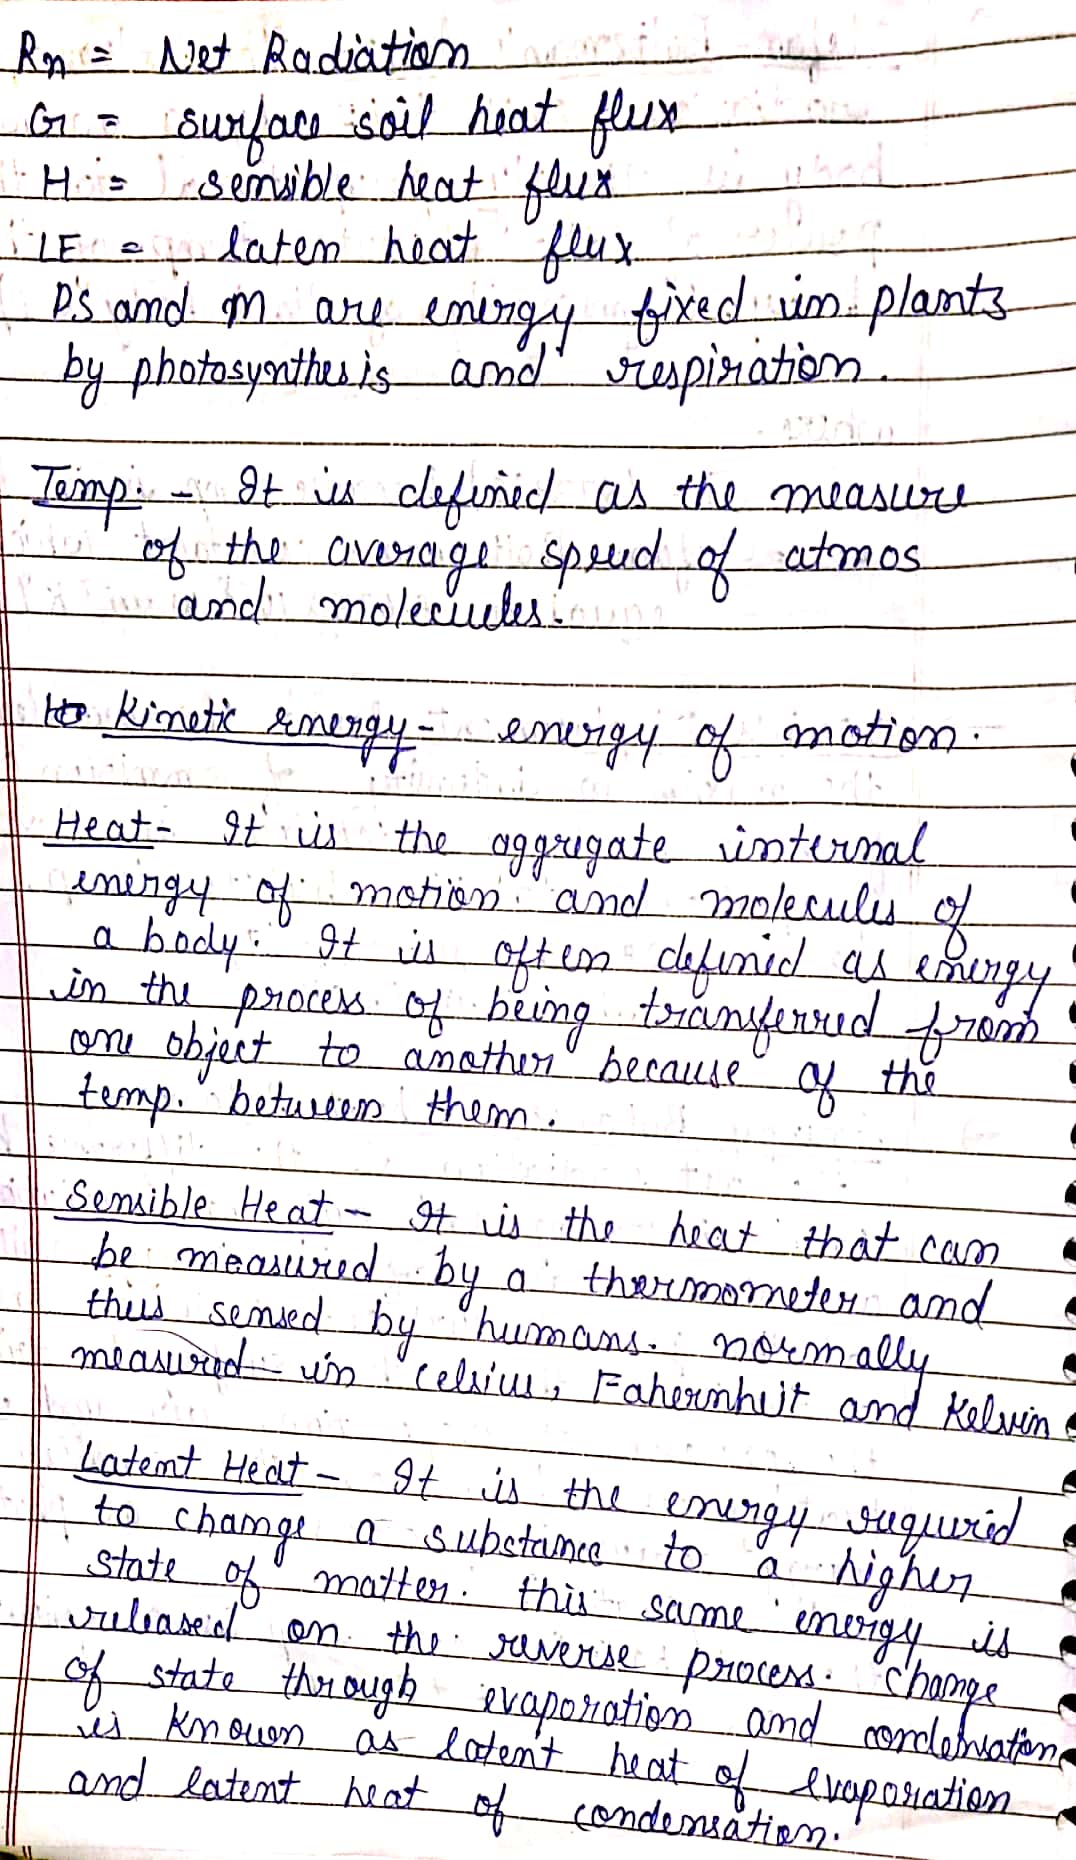 Rn = Net Radiation
G = surface soil heat flux
H = sensible heat flux
LE = laten heat flux
PS and M are energy fixed in plants
by photosynthesis and respiration.
Temp. - It is defined as the measure
of the average speed of atmos
and molecules.
to Kinetic energy - energy of motion.
Heat - It is the aggregate internal
energy of motion and molecules of
a body. It is often defined as energy
in the process of being transferred from
one object to another because of the
temp. between them.
Sensible Heat - It is the heat that can
be measured by a thermometer and
thus sensed by humans. normally
measured in celsius, Fahernheit and Kelvin
Latent Heat - It is the energy required
to change a substance to a higher
state of matter. this same energy is
released on the reverse process. Change
of state through evaporation and condensation
is known as latent heat of evaporation
and latent heat of condensation.